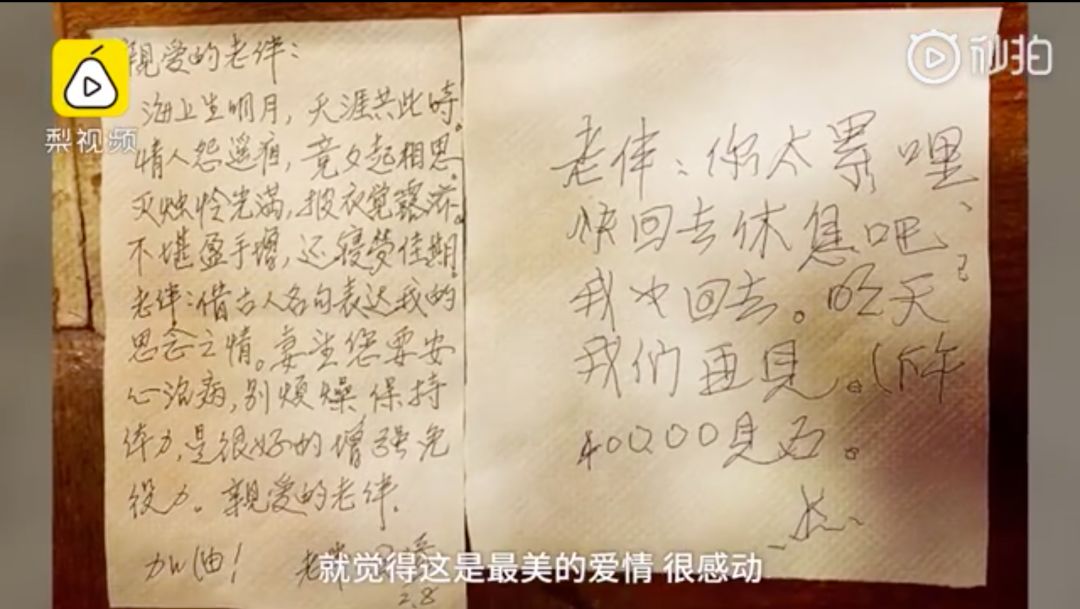 梨视频
秒拍
親爱的老伴：
海上生明月，天涯共此時。
情人怨遥夜，竟夕起相思。
灭烛怜光满，披衣觉露滋。
不堪盈手增，还寝梦佳期。
老伴：借古人名句表达我的
思念之情。妄望您要安
心治病，别烦燥保持
体力，是很好的增强免
役力。親爱的老伴，
加油！
2.8
老伴：你太累哩、
快回去休息吧
我也回去。明天
我们再见。(下午
40000見面。
就觉得这是最美的爱情 很感动